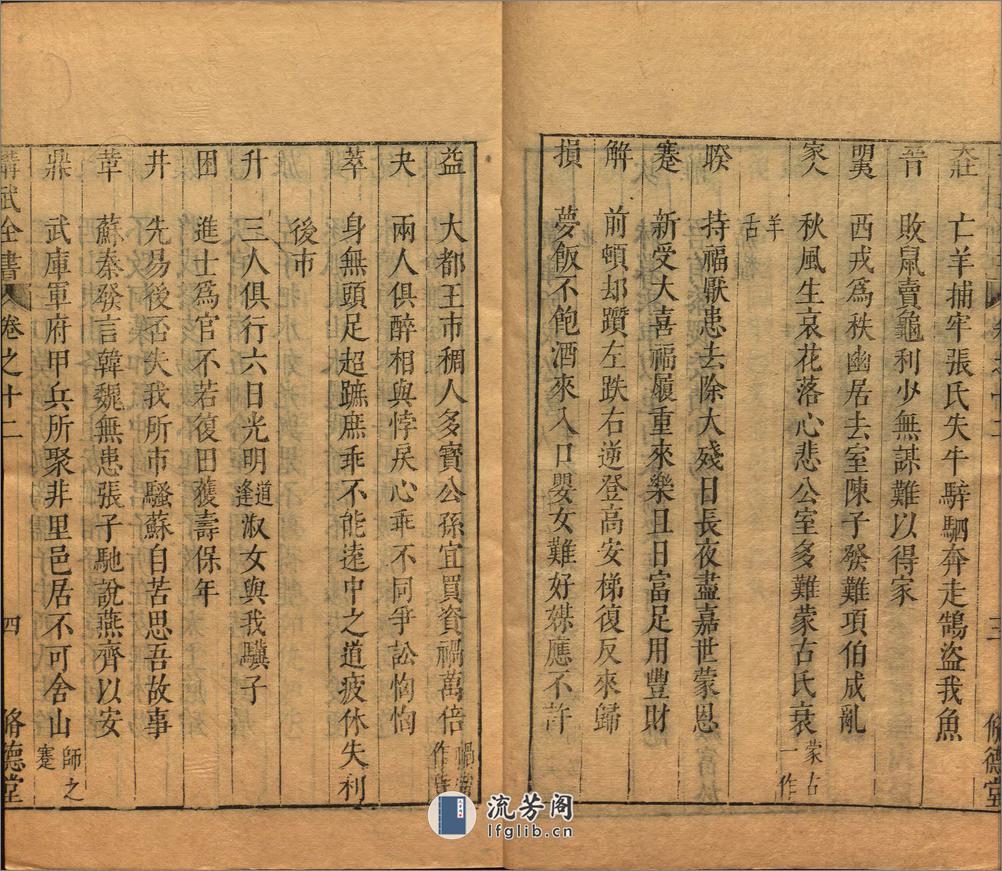 三 脩德堂
大壯 亡羊捕牢張氏失牛騂駵奔走鵠盜我魚
晉 敗鼠賣龜利少無謀難以得家
明夷 西戎爲秩幽居去室陳子發難項伯成亂
家人 秋風生哀花落心悲公室多難蒙古氏衰 蒙古一作
羊舌
睽 持福厭患去除大殘日長夜盡嘉世蒙恩
蹇 新受大喜福履重來樂且日富足用豐財
解 前頓却躓左跌右逆登高安梯復反來歸
損 夢飯不飽酒來入口嬰女難好媒應不許
益 大都王市稠人多寶公孫宜買資禍萬倍
夬 兩人俱醉相與悖戾心乖不同爭訟恟恟
萃 身無頭足超蹠庶乖不能遠中之道疲休失利
後市
升 三人俱行六日光明道逢淑女與我驥子
困 進士爲官不若復田獲壽保年
井 先易後否失我所市騷蘇自苦思吾故事
革 蘇秦發言韓魏無患張子馳說燕齊以安
鼎 武庫軍府甲兵所聚非里邑居不可舍山 師之蹇
講武全書 卷之十二 四 脩德堂
流芳阁
lfglib.cn